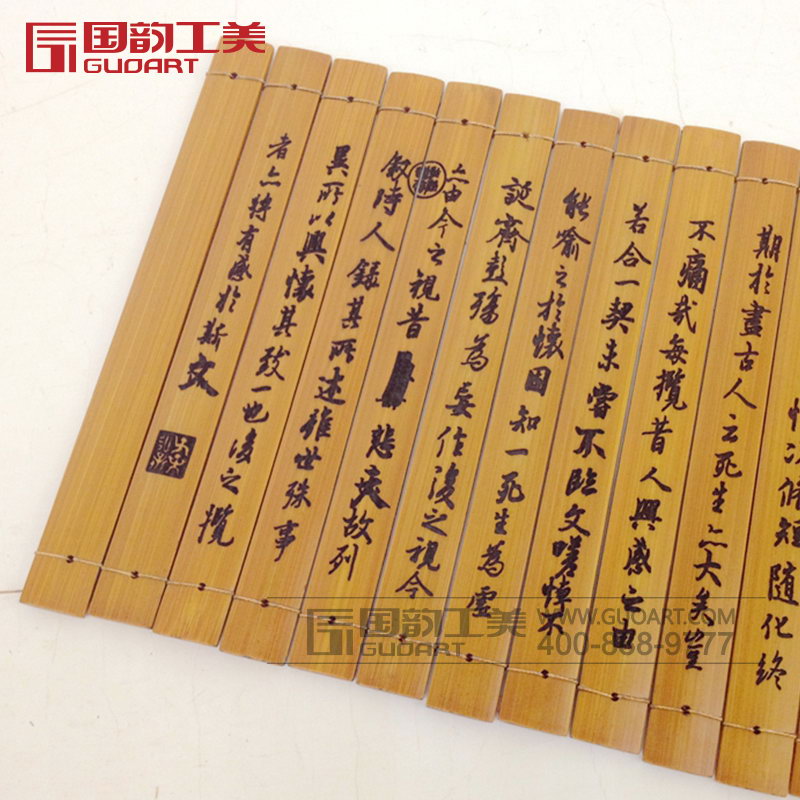 国韵工美
GUOART
脩短隨化終
期於盡古人云死生亦大矣豈
不痛哉每攬昔人興感之由
若合一契未嘗不臨文嗟悼不
能喻之於懷固知一死生為虛
誕齊彭殤為妄作後之視今
亦由今之視昔悲夫故列
敘時人錄其所述雖世殊事
異所以興懷其致一也後之攬
者亦將有感於斯文
国韵工美
GUOART
WWW.GUOART.COM